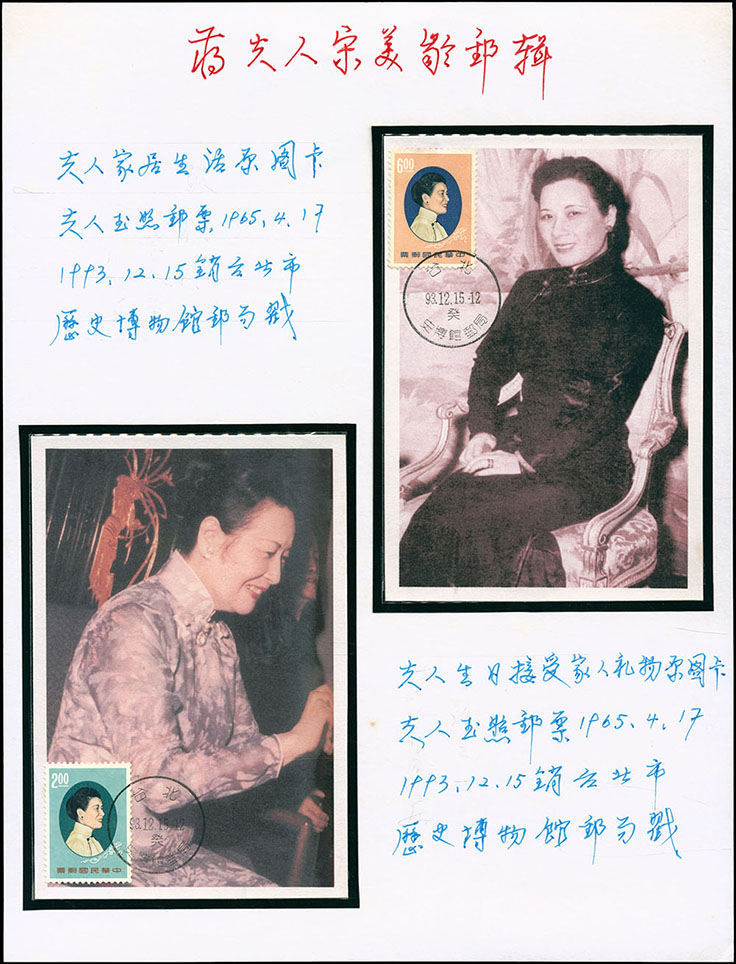 蒋夫人宋美龄郵辑
夫人家居生活原图卡
夫人玉照郵票1965.4.17
1993.12.15銷台北市
歷史博物館郵局戳
6.00
票郵國民華中
台北
93.12.15-12
癸
史博館郵局
2.00
票郵國民華中
台北
93.12.15-12
癸
夫人生日接受家人礼物原图卡
夫人玉照郵票1965.4.17
1993.12.15銷台北市
歷史博物館郵局戳